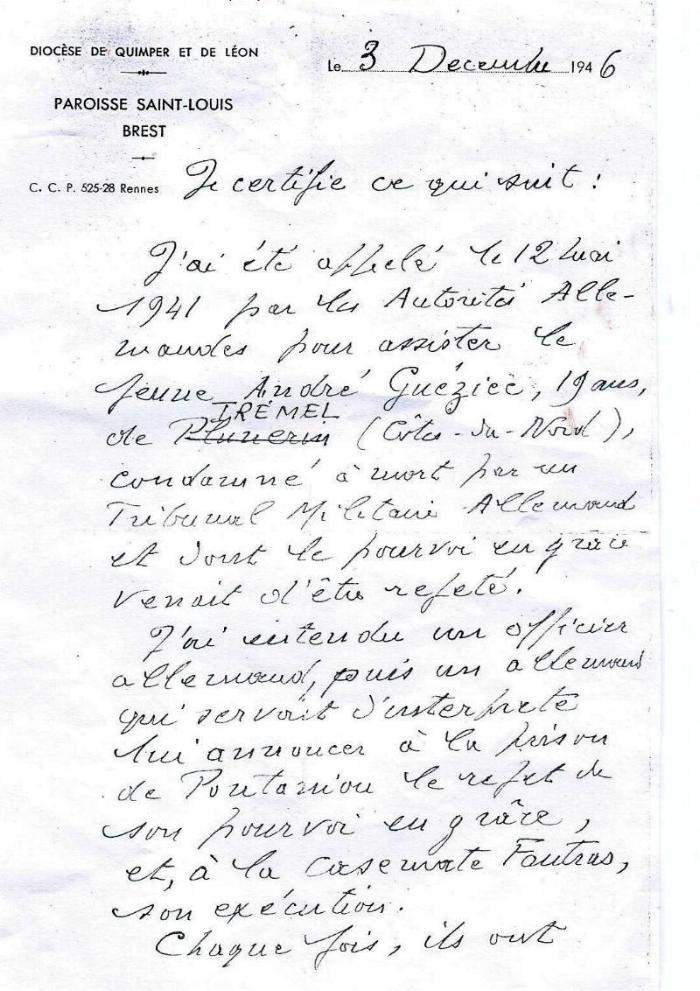 DIOCÈSE DE QUIMPER ET DE LÉON
Le 3 Decembre 1946
PAROISSE SAINT-LOUIS
BREST
C. C. P. 525-28 Rennes
Je certifie ce qui suit :
J'ai été appelé le 12 mai
1941 par les Autorités Alle-
mandes pour assister le
jeune André Guéziec, 19 ans,
TREMEL
de Plounerin (Côtes-du-Nord),
condamné à mort par un
Tribunal Militaire Allemand
et dont le pourvoi en grâce
venait d'être rejeté.
J'ai entendu un officier
allemand, puis un allemand
qui servait d'interprète
lui annoncer à la prison
de Pontaniou le rejet de
son pourvoi en grâce,
et, à la casemate Fautras,
son exécution.
Chaque fois, ils ont